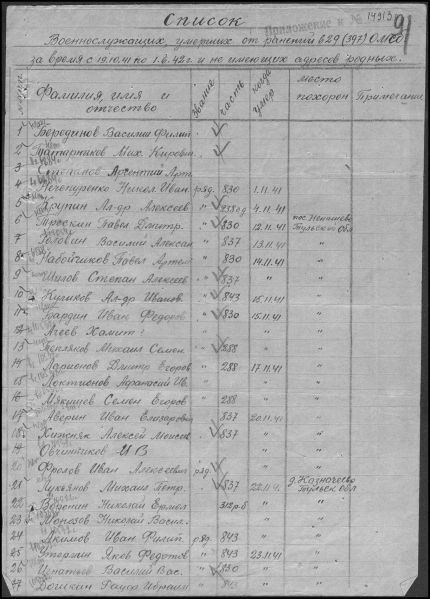 Список
Приложение к № 14913
91
Военнослужащих, умерших от ранений в 29 (397) ОМСБ
за время с 19.10.41 по 1.8.42 г. и не имеющих адресов родных.
Фамилия имя и отчество Звание часть когда умер место похорон Примечание
1 Бородинов Василий Филип.
2 Татарников Мих. Кирович.
3 Степанов Арсентий Арт.
4 Нечепуренко Никол Иван. ряд. 830 1.11.41
5 Крупин Ал-др Алексеев " 238 сд 4.11.41
6 Троскин Павел Дмитр. " 830 12.11.41 пос Ненашево Тульской Обл
7 Головин Василий Алексан " 837 13.11.41 "
8 Набойчиков Павел Артем " 830 14.11.41 "
9 Шилов Степан Алексеев " 837 " "
10 Куликов Ал-др Иванов. " 843 15.11.41 "
11 Бардин Иван Федоров " 830 15.11.41 "
12 Агеев Хамит " " "
13 Тепляков Михаил Семен " 288 " "
14 Ларионов Дмитр Егоров " 288 17.11.41 "
15 Локтионов Афанасий Ив. " " "
16 Мякишев Семен Егоров " 288 " "
17 Аверин Иван Елизарович 837 20.11.41 "
18 Хижняк Алексей Моисеев " 837 " "
19 Овчинников И В " "
20 Фролов Иван Алексеевич ряд. " "
21 Лукьянов Михаил Петр. " 837 22.11.4 д. Казначеево Тульск Обл
22 Воронин Николай Ермол 312 р.б " "
23 Моногов Николай Васил. " "
24 Акимов Иван Филип. ряд. 843 " "
25 Утерлин Яков Федотов " 843 23.11.41 "
26 Игнатьев Василий Вас. " 830 " "
27 Ибраим " 843 " "